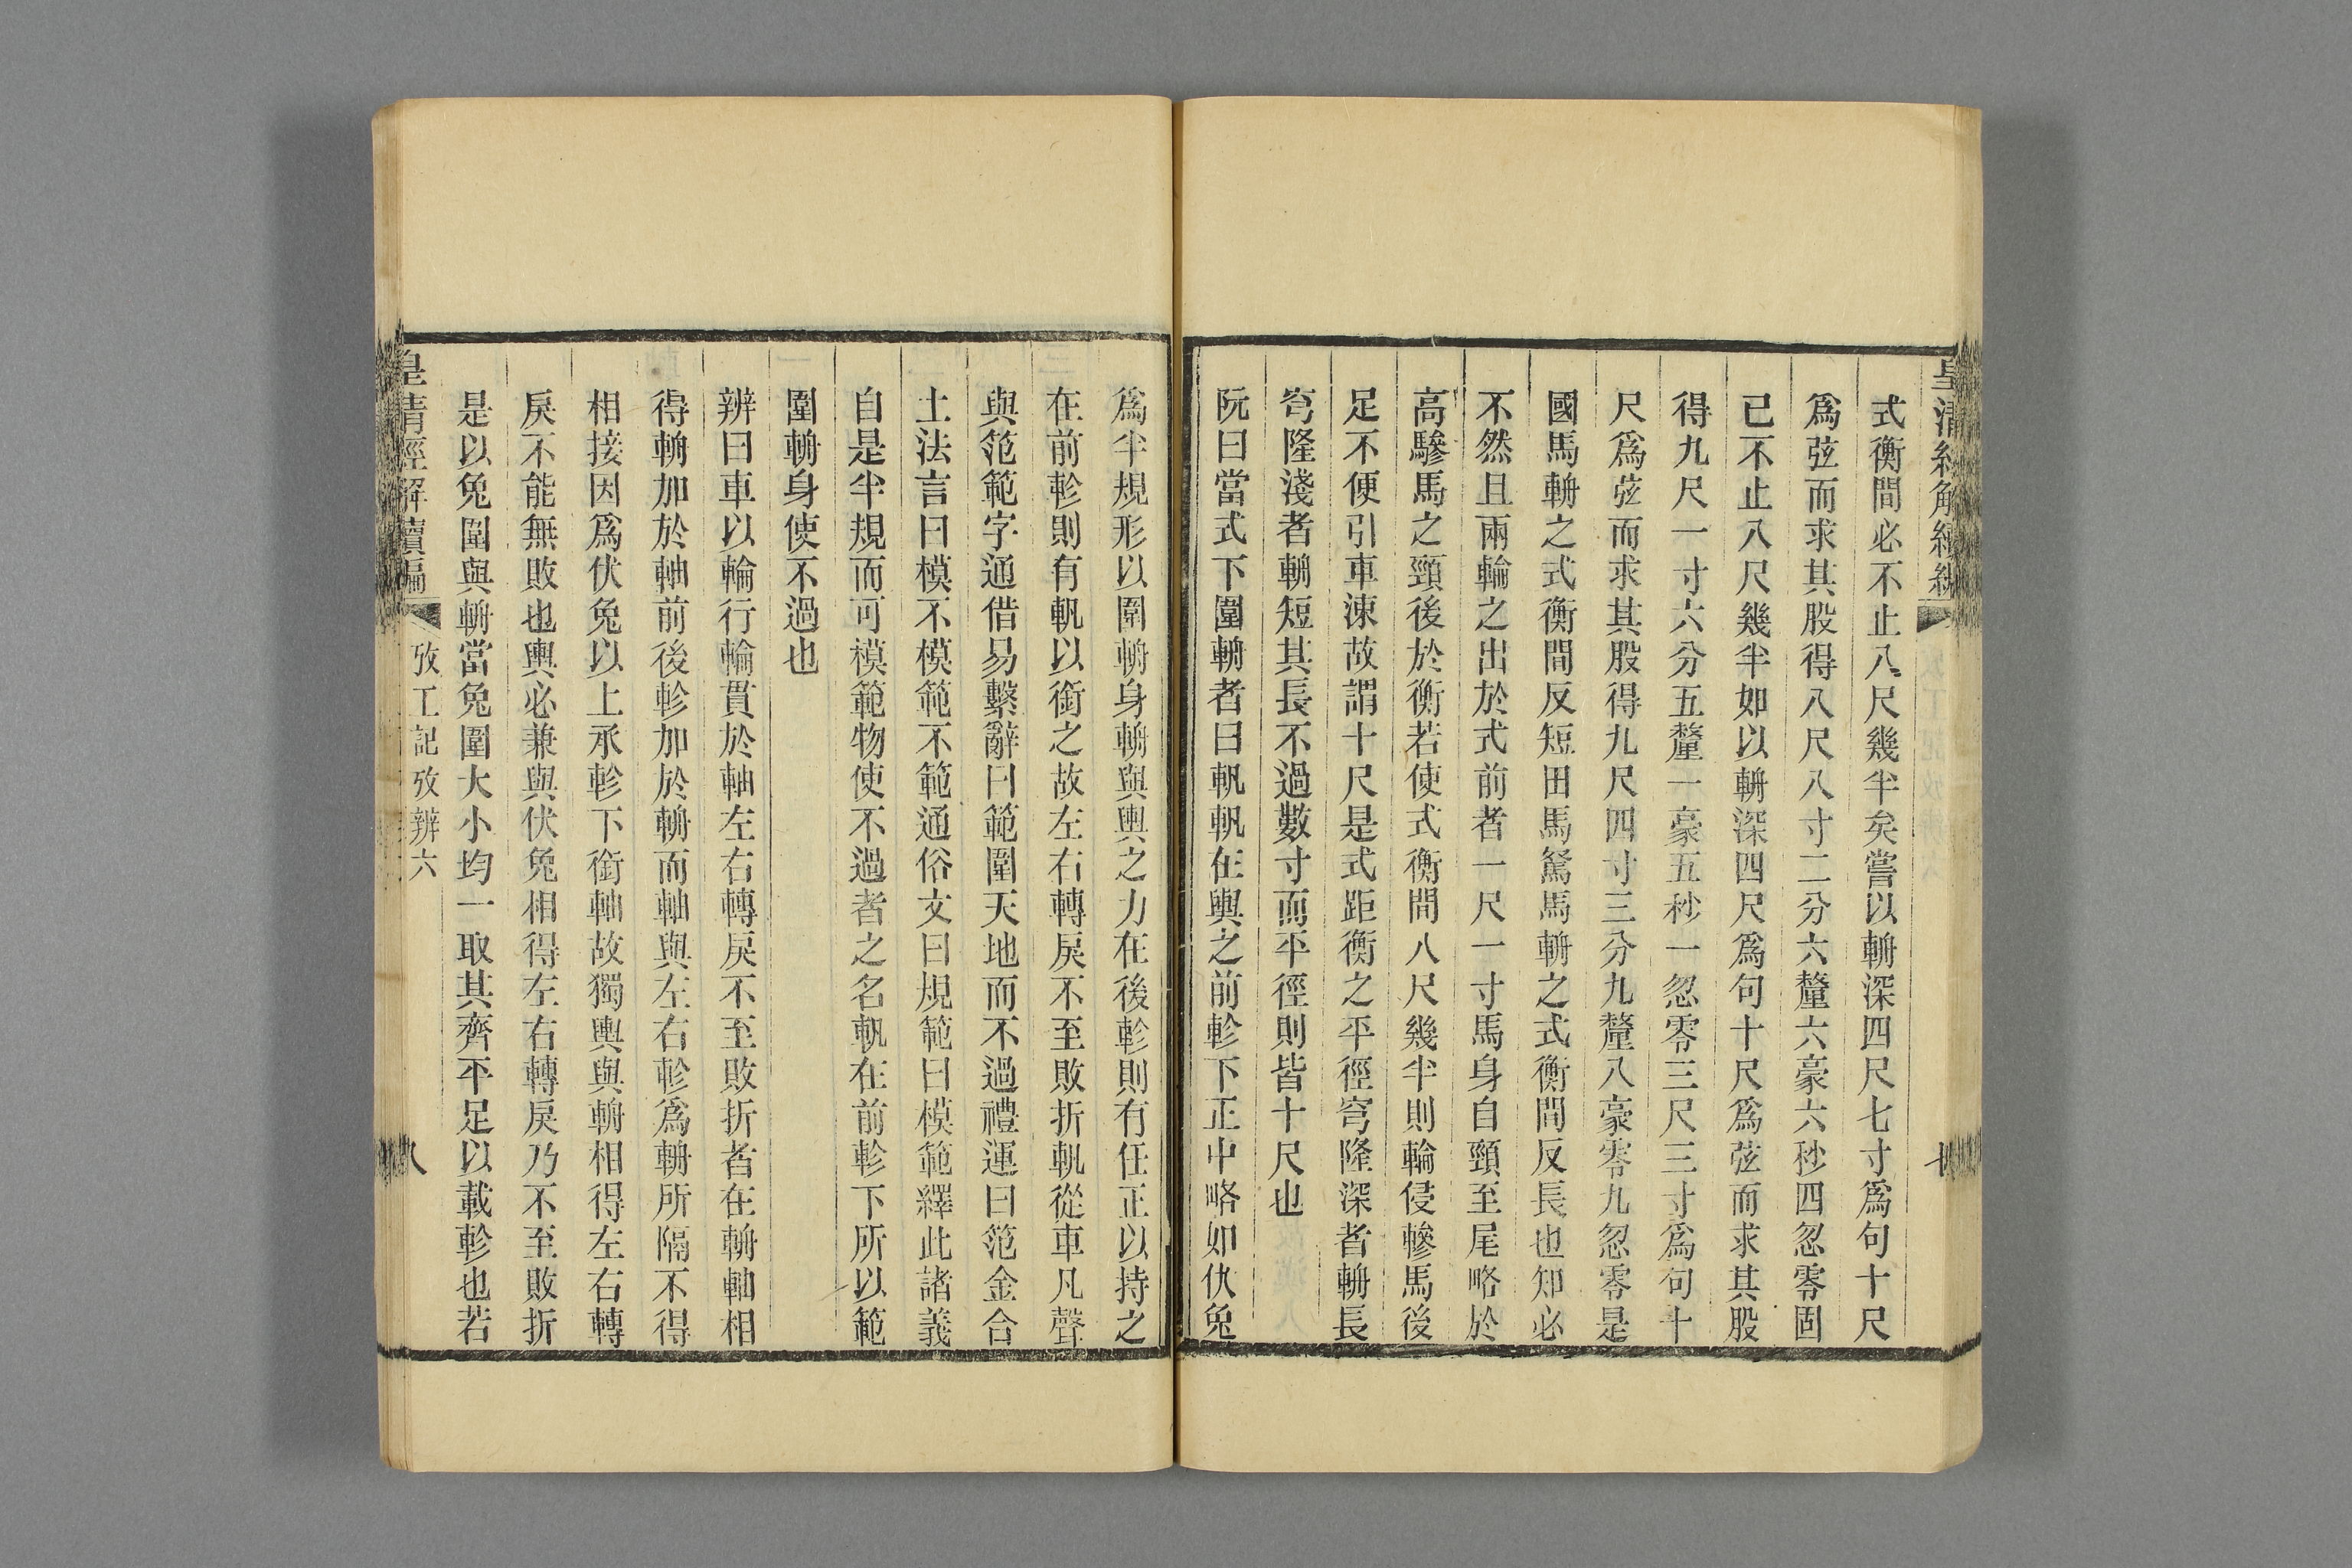 皇清經解續編
式衡間必不止八尺幾半矣嘗以輈深四尺七寸爲句十尺
爲弦而求其股得八尺八寸二分六釐六豪六秒四忽零固
已不止八尺幾半如以輈深四尺爲句十尺爲弦而求其股
得九尺一寸六分五釐一豪五秒一忽零三尺三寸爲句十
尺爲弦而求其股得九尺四寸三分九釐八豪零九忽零是
國馬輈之式衡間反短田馬駑馬輈之式衡間反長也知必
不然且兩輪之出於式前者一尺一寸馬身自頸至尾略於
高驂馬之頸後於衡若使式衡間八尺幾半則輪侵驂馬後
足不便引車涑故謂十尺是式距衡之平徑穹隆深者輈長
穹隆淺者輈短其長不過數寸而平徑則皆十尺也
阮曰當式下圍輈者曰軓軓在輿之前軫下正中略如伏兔
爲半規形以圍輈身輈與輿之力在後軫則有任正以持之
在前軫則有軓以銜之故左右轉戾不至敗折軓從車凡聲
與范範字通借易繫辭曰範圍天地而不過禮運曰范金合
土法言曰模不模範不範通俗文曰規範曰模範繹此諸義
自是半規而可模範物使不過者之名軓在前軫下所以範
圍輈身使不過也
辨曰車以輪行輪貫於軸左右轉戾不至敗折者在輈軸相
得輈加於軸前後軫加於輈而軸與左右軫爲輈所隔不得
相接因爲伏兔以上承軫下銜軸故獨輿與輈相得左右轉
戾不能無敗也輿必兼與伏兔相得左右轉戾乃不至敗折
是以兔圍與輈當兔圍大小均一取其齊平足以載軫也若
皇清經解續編 攷工記攷辨六 八